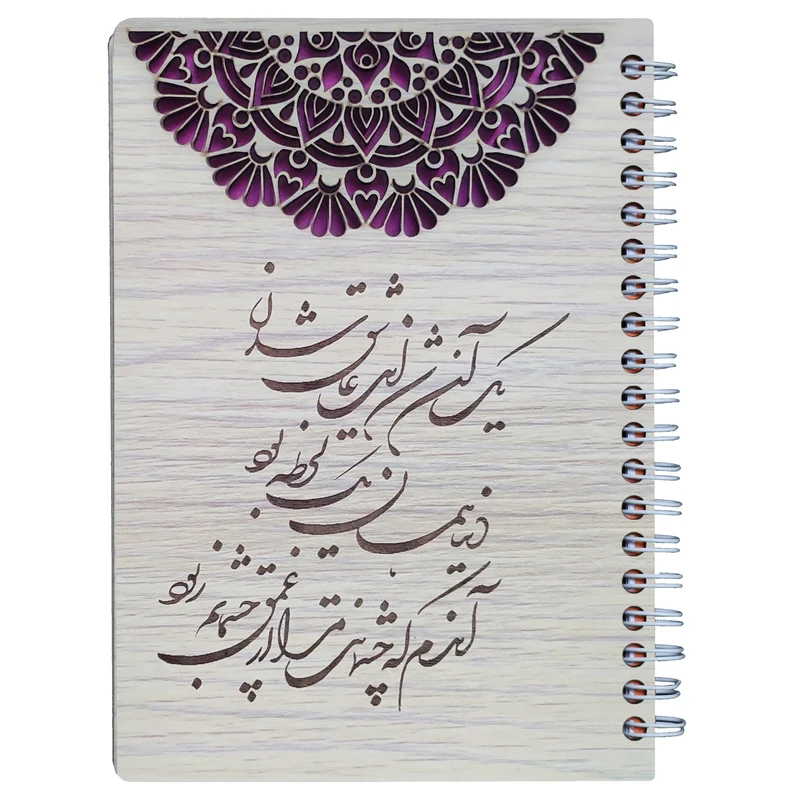 یک آن شد این عاشق شدن
دنیا همان یک لحظه بود
آندم که چشمانت مرا از عمق چشمانم ربود